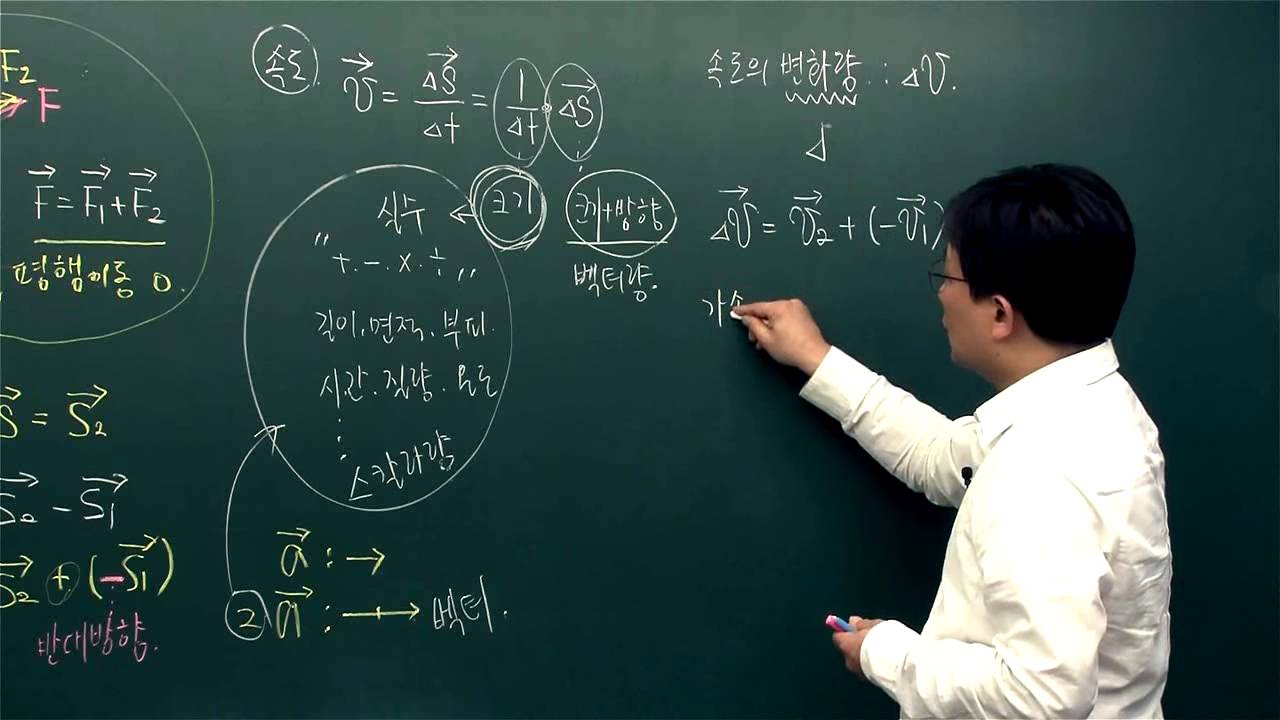 F₂
F
F⃗ = F⃗₁ + F⃗₂
평행이동 0.
S⃗ = S⃗₂
S⃗₂ - S⃗₁
S⃗₂ + (-S⃗₁)
반대방향.
속도. v⃗ = ΔS⃗/Δt = 1/Δt · ΔS⃗
실수 ← 크기
"+. -. ×. ÷"
길이. 면적. 부피.
시간. 질량. 온도
스칼라량
크기+방향
벡터량.
a⃗ : →
2a⃗ : → 벡터.
속도의 변화량. : Δv.
Δ
Δv⃗ = v⃗₂ + (-v⃗₁)
가속